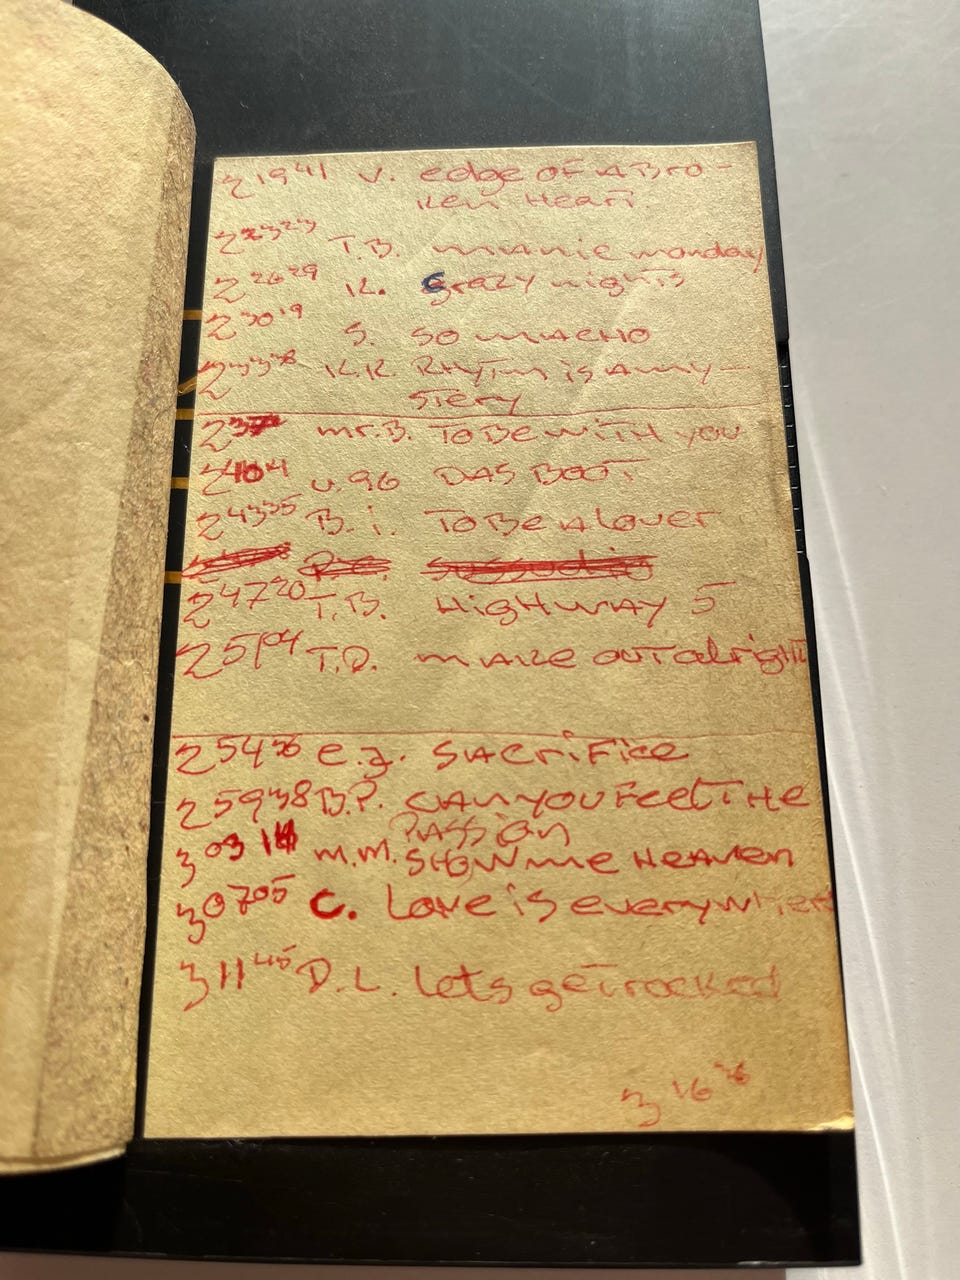 2 19 41 V. edge OF A Bro-
Ken Heart.
2 23 23 T.B. MANIC monday
2 26 29 K. Crazy nights
2 30 19 S. SO MACHO
2 33 38 K.K. RHYTM is A my-
STery
2 37 mr.B. TO Be WITH you
2 40 4 U.96 DAS BOOT
2 43 35 B.i. TO Be A lover
2 47 20 T.B. HigHWAY 5
2 51 04 T.D. MAKE OUT alright
2 54 36 e.J. SAcriFice
2 59 38 B.P. CAN YOU Feel THe
PASSion
3 03 14 M.M. SHOW me HeAven
3 07 05 C. Love is everywhere
3 11 45 D.L. Lets geT rocked
3 16 36